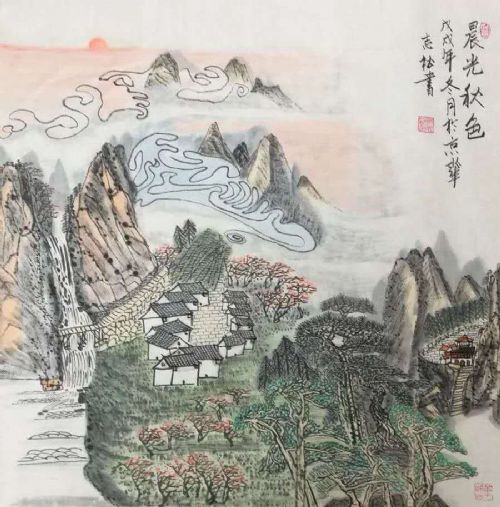 晨光秋色
戊戌年冬月於京華
志松書